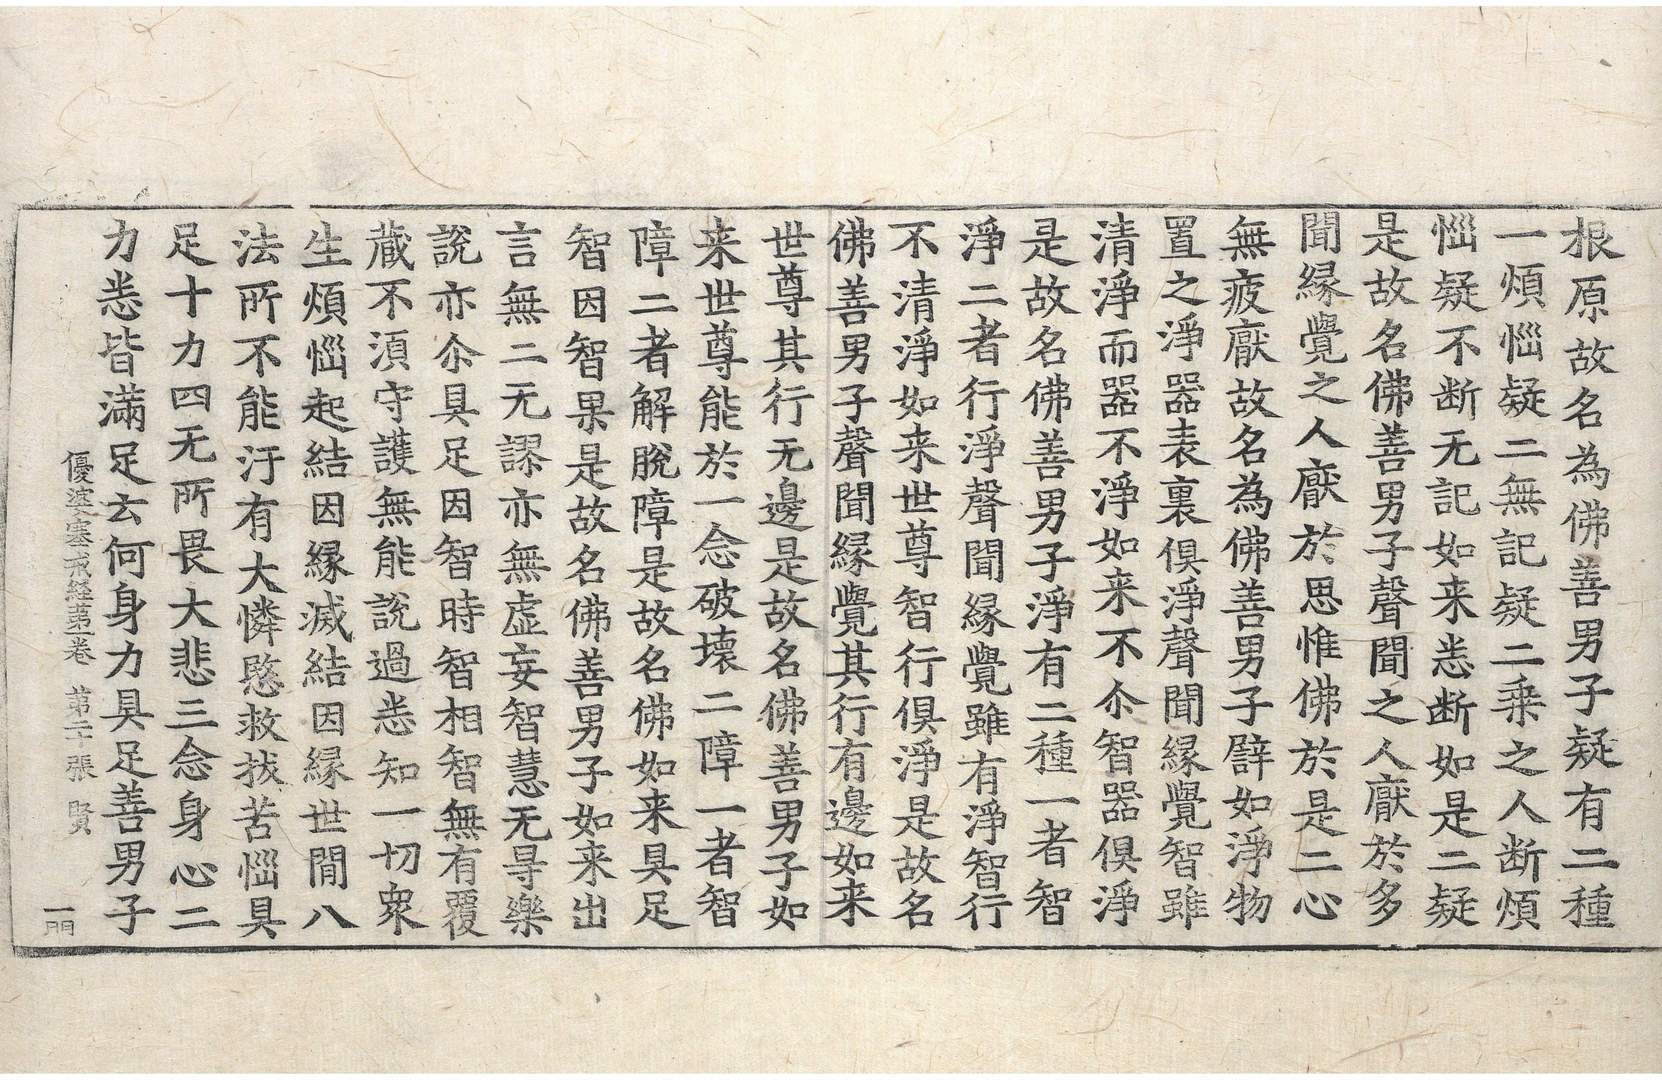 根原故名為佛善男子疑有二種
一煩惱疑二無記疑二乘之人断煩
惱疑不断无記如来悉断如是二疑
是故名佛善男子聲聞之人厭於多
聞緣覺之人厭於思惟佛於是二心
無疲厭故名為佛善男子譬如淨物
置之淨器表裏俱淨聲聞緣覺智雖
清淨而器不淨如来不尒智器俱淨
是故名佛善男子淨有二種一者智
淨二者行淨聲聞緣覺雖有淨智行
不清淨如来世尊智行俱淨是故名
佛善男子聲聞緣覺其行有邊如来
世尊其行无邊是故名佛善男子如
来世尊能於一念破壞二障一者智
障二者解脫障是故名佛如来具足
智因智果是故名佛善男子如来出
言無二无謬亦無虛妄智慧无㝵樂
說亦尒具足因智時智相智無有覆
蔵不湏守護無能說過悉知一切衆
生煩惱起結因緣滅結因緣世閒八
法所不能汙有大憐愍救拔苦惱具
足十力四无所畏大悲三念身心二
力悉皆滿足云何身力具足善男子
優婆塞戒經第一卷 第二十張 賢